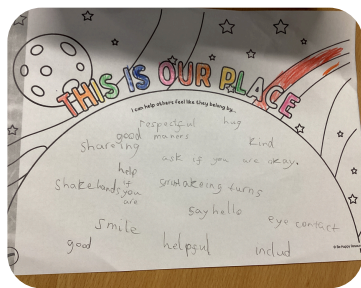 THIS IS OUR PLACE
I can help others feel like they belong by...
respectful hug
good manners
shareing kind
ask if you we okay.
help
shakehands if you are
smile
say hello
eye contact
good helpful includ